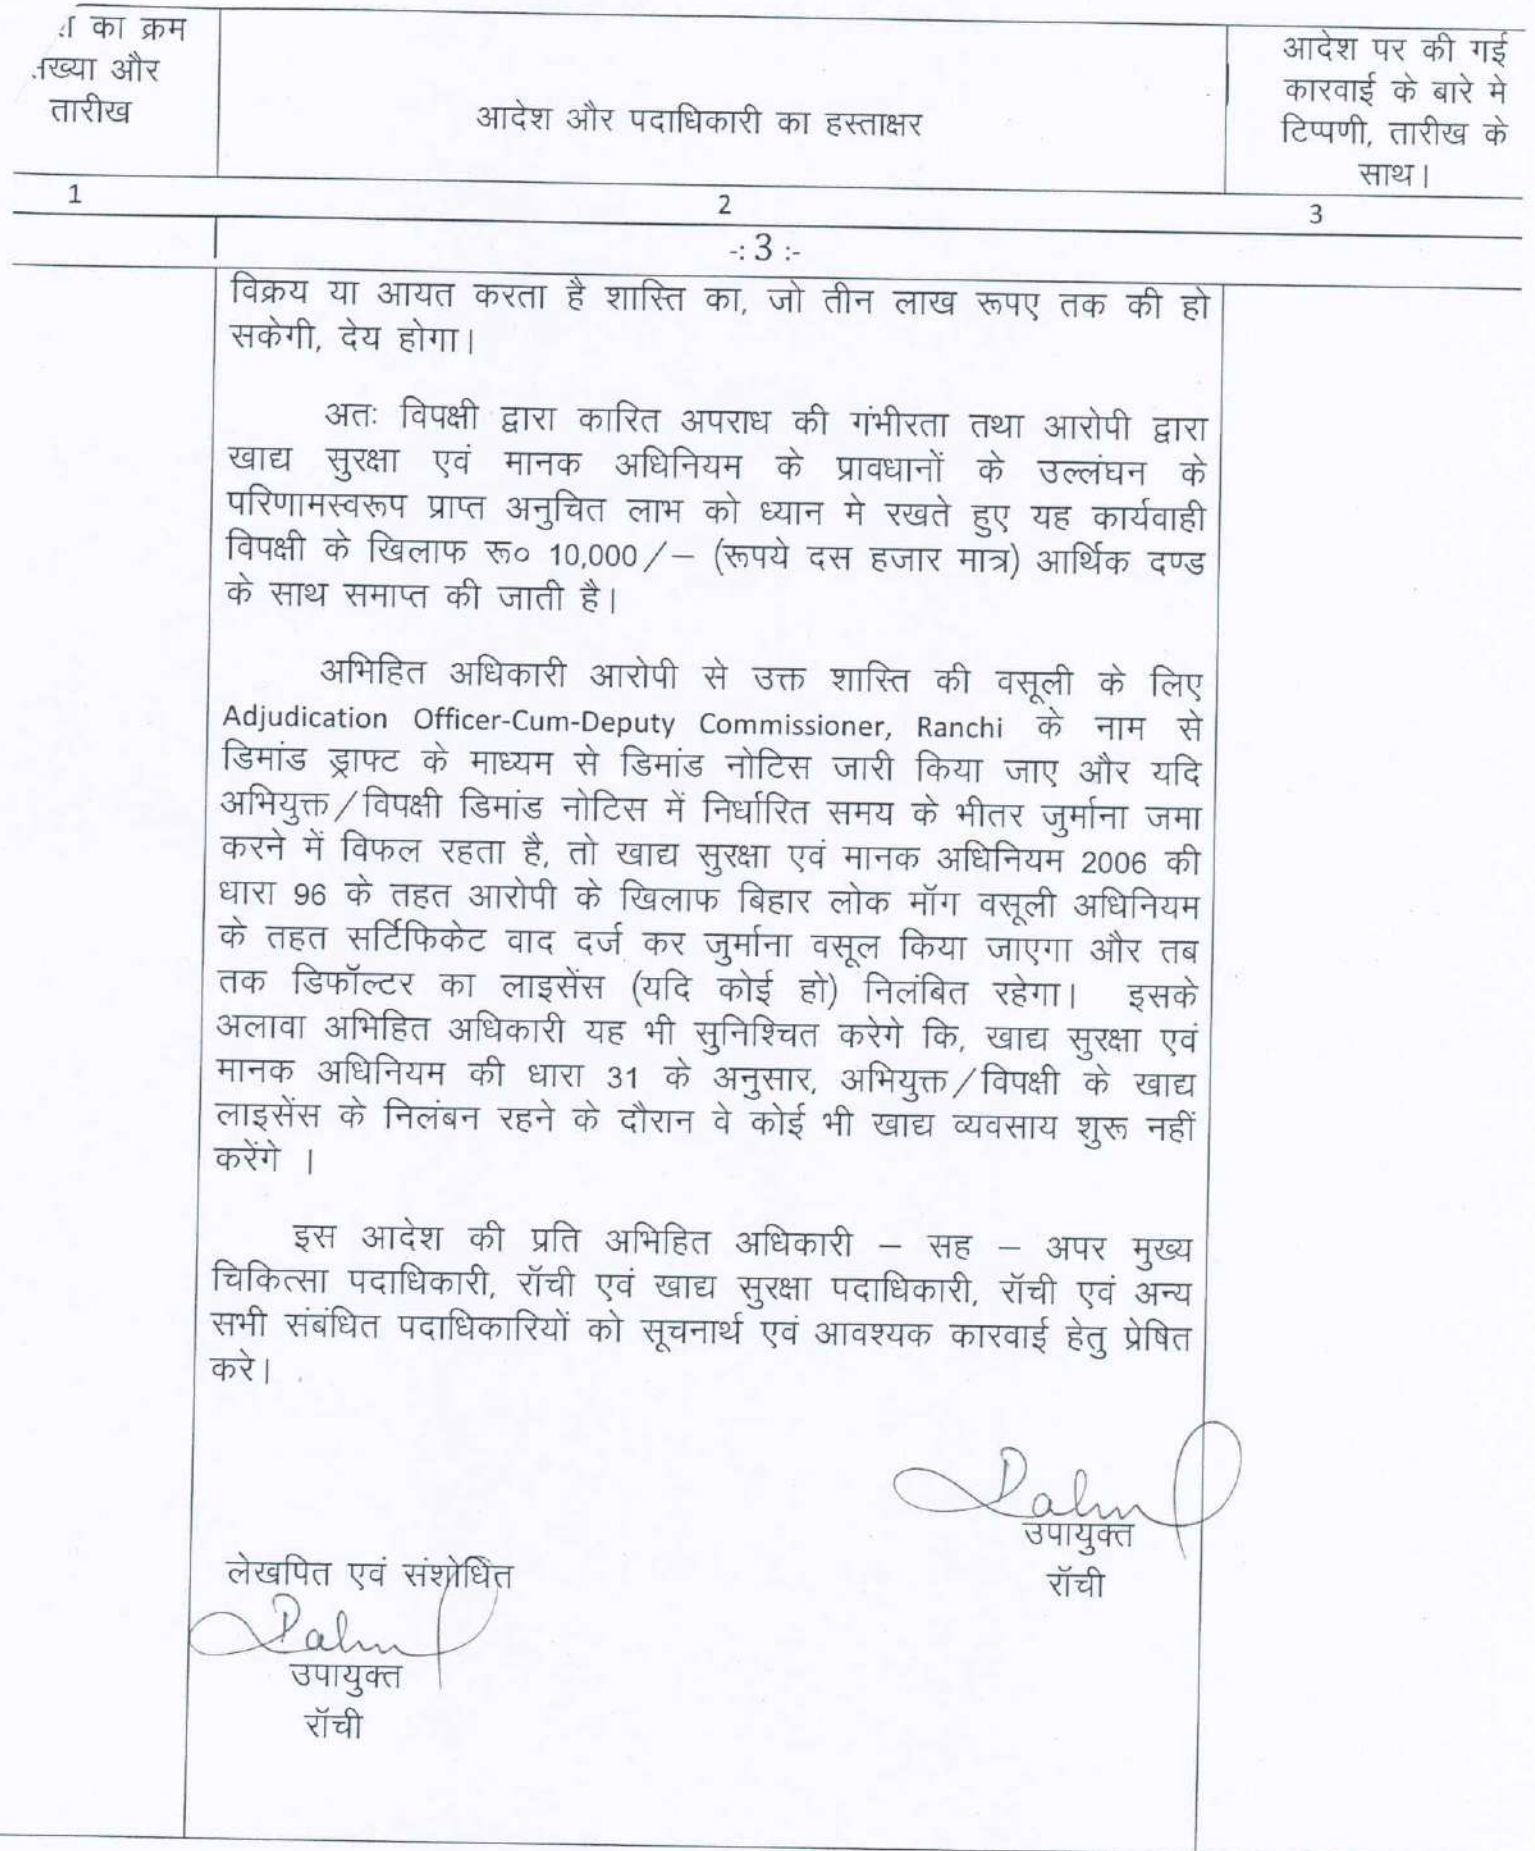 का क्रम
और
तारीख
आदेश और पदाधिकारी का हस्ताक्षर
आदेश पर की गई
कारवाई के बारे मे
टिप्पणी, तारीख के
साथ।
1
2
3
-: 3 :-
विक्रय या आयत करता है शास्ति का, जो तीन लाख रूपए तक की हो
सकेगी, देय होगा।
अतः विपक्षी द्वारा कारित अपराध की गंभीरता तथा आरोपी द्वारा
खाद्य सुरक्षा एवं मानक अधिनियम के प्रावधानों के उल्लंघन के
परिणामस्वरूप प्राप्त अनुचित लाभ को ध्यान मे रखते हुए यह कार्यवाही
विपक्षी के खिलाफ रू० 10,000/– (रूपये दस हजार मात्र) आर्थिक दण्ड
के साथ समाप्त की जाती है।
अभिहित अधिकारी आरोपी से उक्त शास्ति की वसूली के लिए
Adjudication Officer-Cum-Deputy Commissioner, Ranchi के नाम से
डिमांड ड्राफ्ट के माध्यम से डिमांड नोटिस जारी किया जाए और यदि
अभियुक्त/विपक्षी डिमांड नोटिस में निर्धारित समय के भीतर जुर्माना जमा
करने में विफल रहता है, तो खाद्य सुरक्षा एवं मानक अधिनियम 2006 की
धारा 96 के तहत आरोपी के खिलाफ बिहार लोक मॉग वसूली अधिनियम
के तहत सर्टिफिकेट वाद दर्ज कर जुर्माना वसूल किया जाएगा और तब
तक डिफॉल्टर का लाइसेंस (यदि कोई हो) निलंबित रहेगा। इसके
अलावा अभिहित अधिकारी यह भी सुनिश्चित करेगे कि, खाद्य सुरक्षा एवं
मानक अधिनियम की धारा 31 के अनुसार, अभियुक्त/विपक्षी के खाद्य
लाइसेंस के निलंबन रहने के दौरान वे कोई भी खाद्य व्यवसाय शुरू नहीं
करेंगे ।
इस आदेश की प्रति अभिहित अधिकारी – सह – अपर मुख्य
चिकित्सा पदाधिकारी, रॉची एवं खाद्य सुरक्षा पदाधिकारी, रॉची एवं अन्य
सभी संबंधित पदाधिकारियों को सूचनार्थ एवं आवश्यक कारवाई हेतु प्रेषित
करे।
उपायुक्त
रॉची
लेखपित एवं संशोधित
उपायुक्त
रॉची